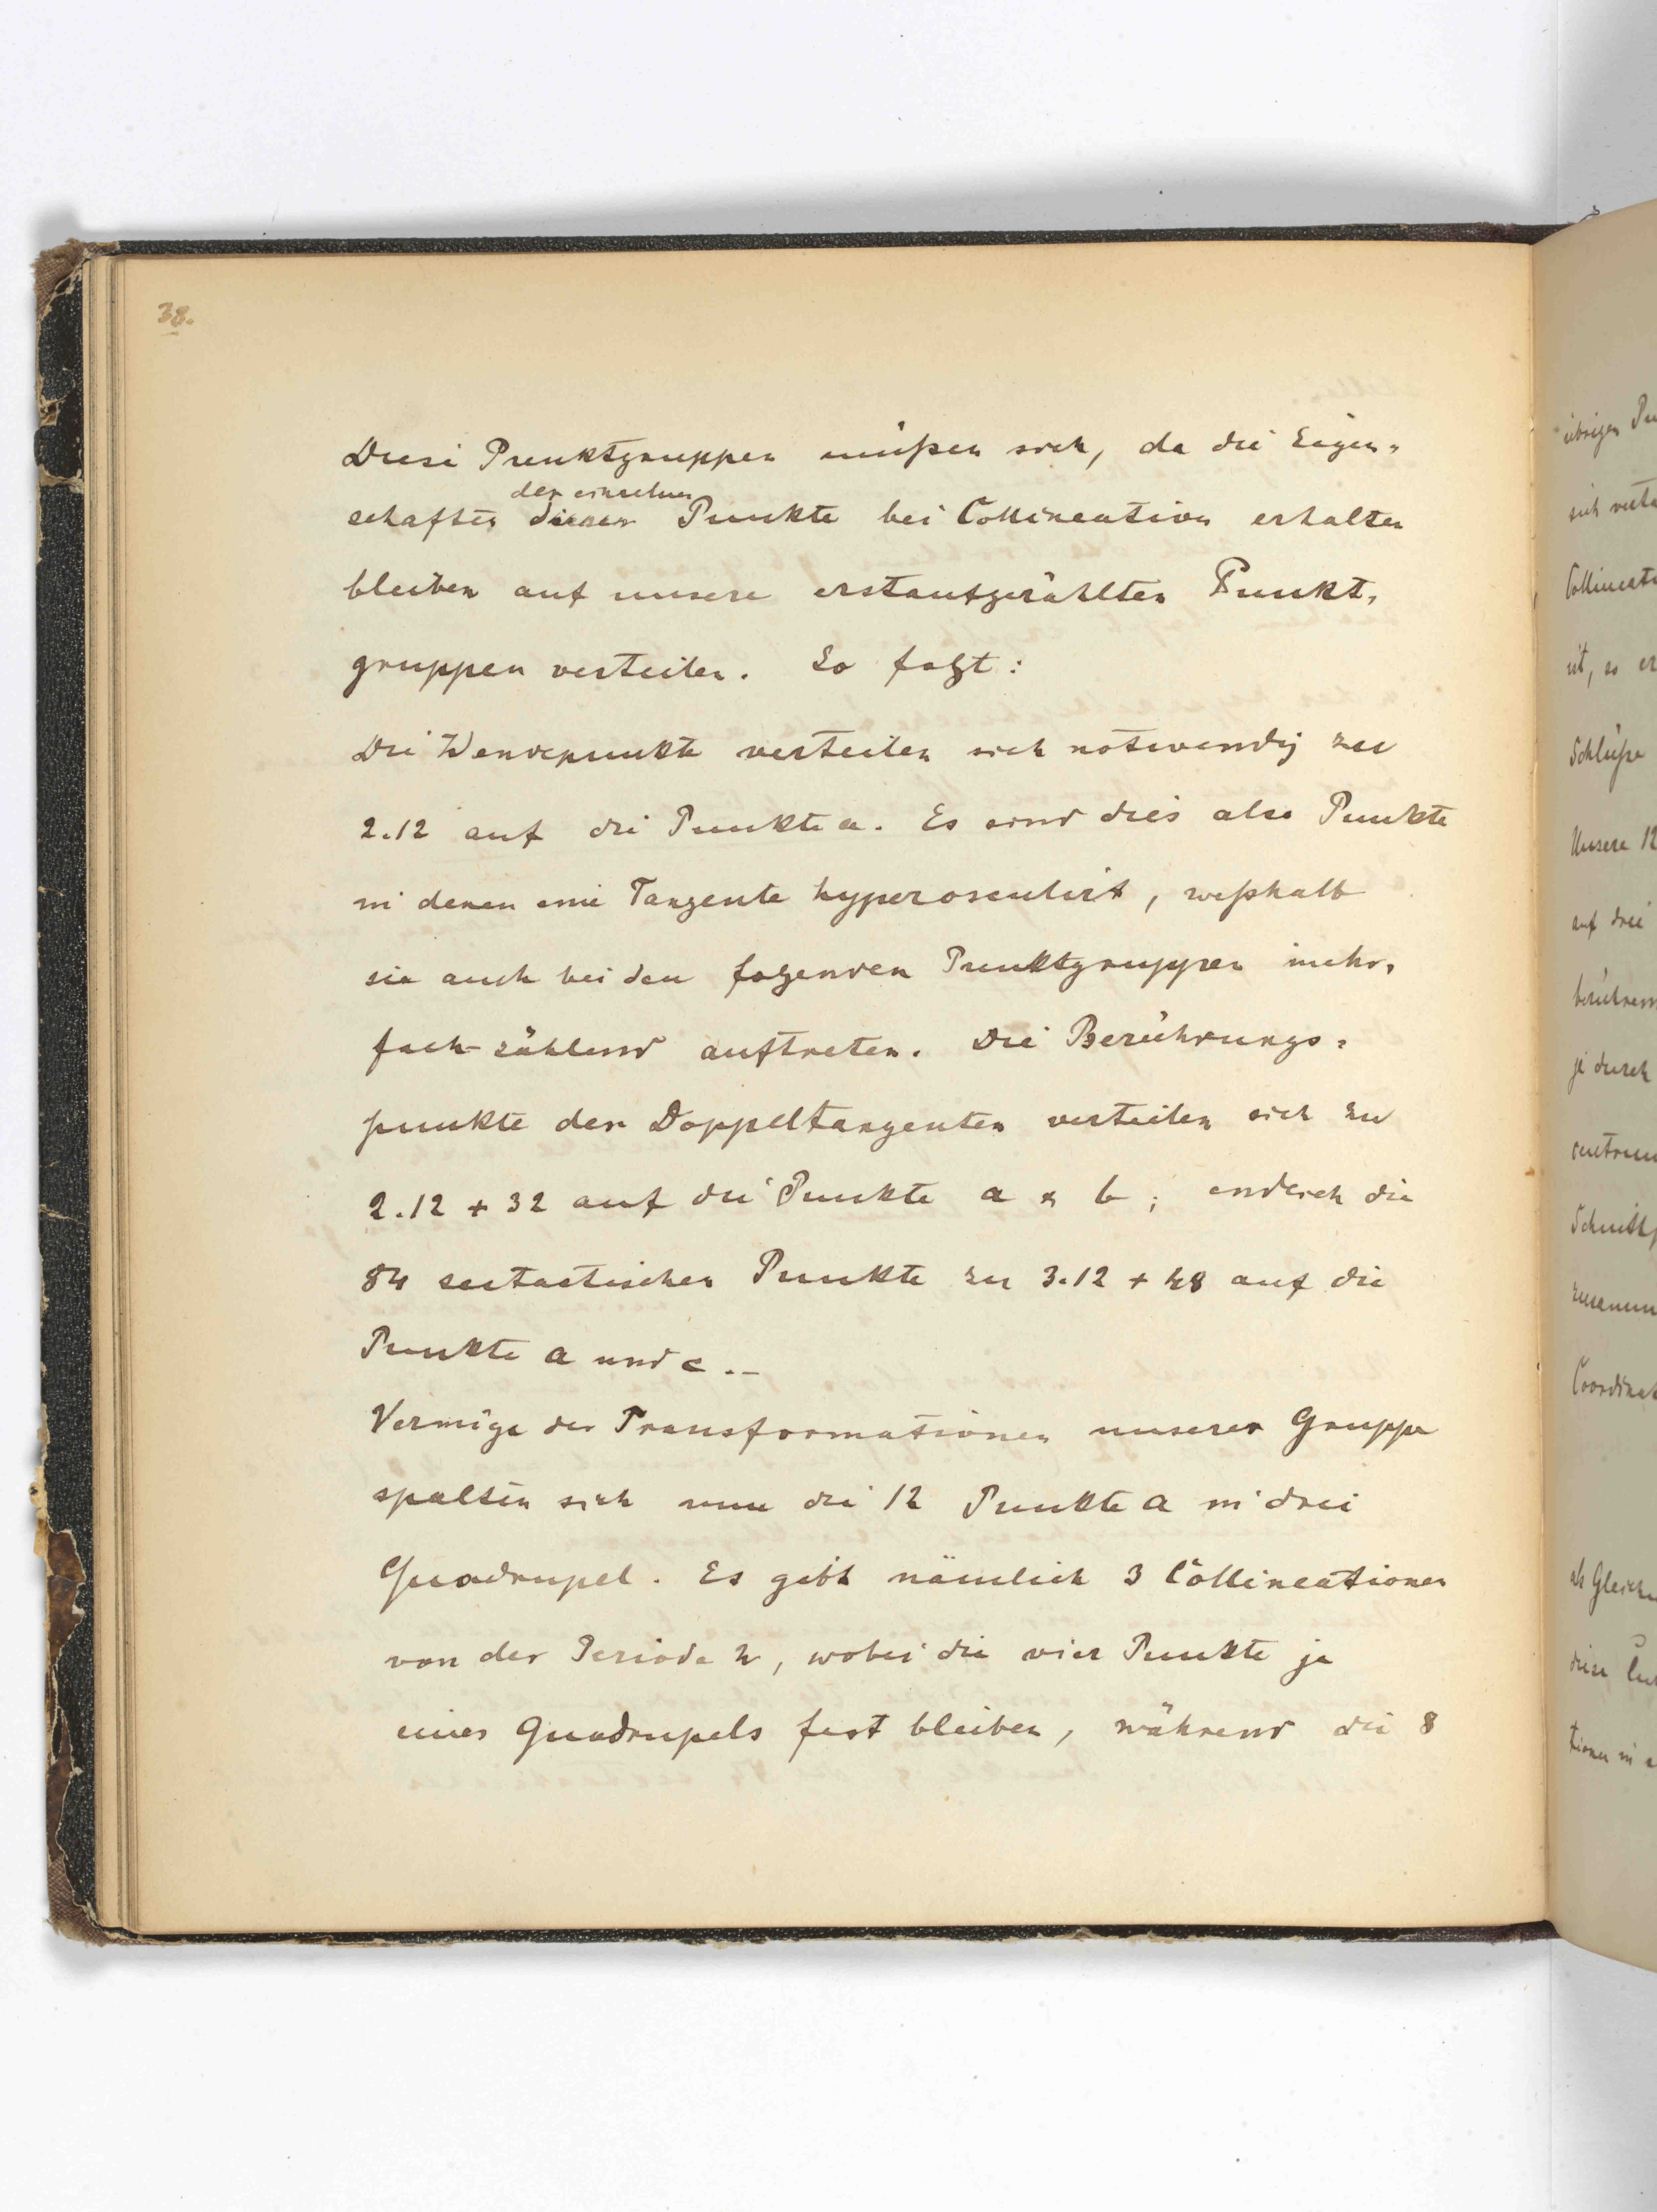 38.
Diese Punktgruppen müßen sich, da die Eigen-
der einzelnen
schaften dieser Punkte bei Collineation erhalten
bleiben auf unsere erstaufgezählten Punkt-
gruppen verteilen. So folgt:
Die Wendepunkte verteilen sich notwendig zu
2.12 auf die Punkte a. Es sind dies also Punkte
in denen eine Tangente hyperosculirt, weßhalb
sie auch bei den folgenden Punktgruppen mehr-
fach-zählend auftreten. Die Berührungs-
punkte der Doppeltangenten verteilen sich zu
2.12 + 32 auf die Punkte a & b; endlich die
84 sextactischen Punkte zu 3.12 + 48 auf die
Punkte a und c.–
Vermöge der Transformationen unserer Gruppe
spalten sich nun die 12 Punkte a in drei
Quadrupel. Es gibt nämlich 3 Collineationen
von der Periode 2, wobei die vier Punkte je
eines Quadrupels fest bleiben, während die 8
übrigen Pu
sich verte
Collineati
ist, so er
Schlüße
Unsere 12
auf drei
berühren
je durch
centrum
Schnittp
zusamm
Coordinat
als Gleich
diese Cur
tionen in